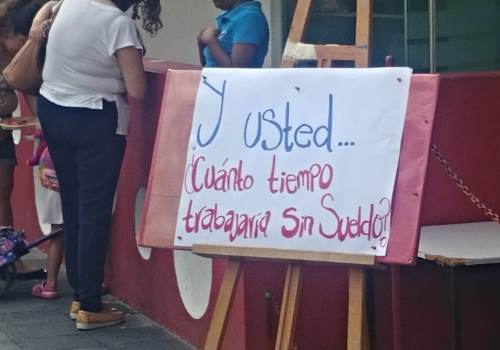 Y usted...
¿Cuánto tiempo
trabajaría sin Sueldo?